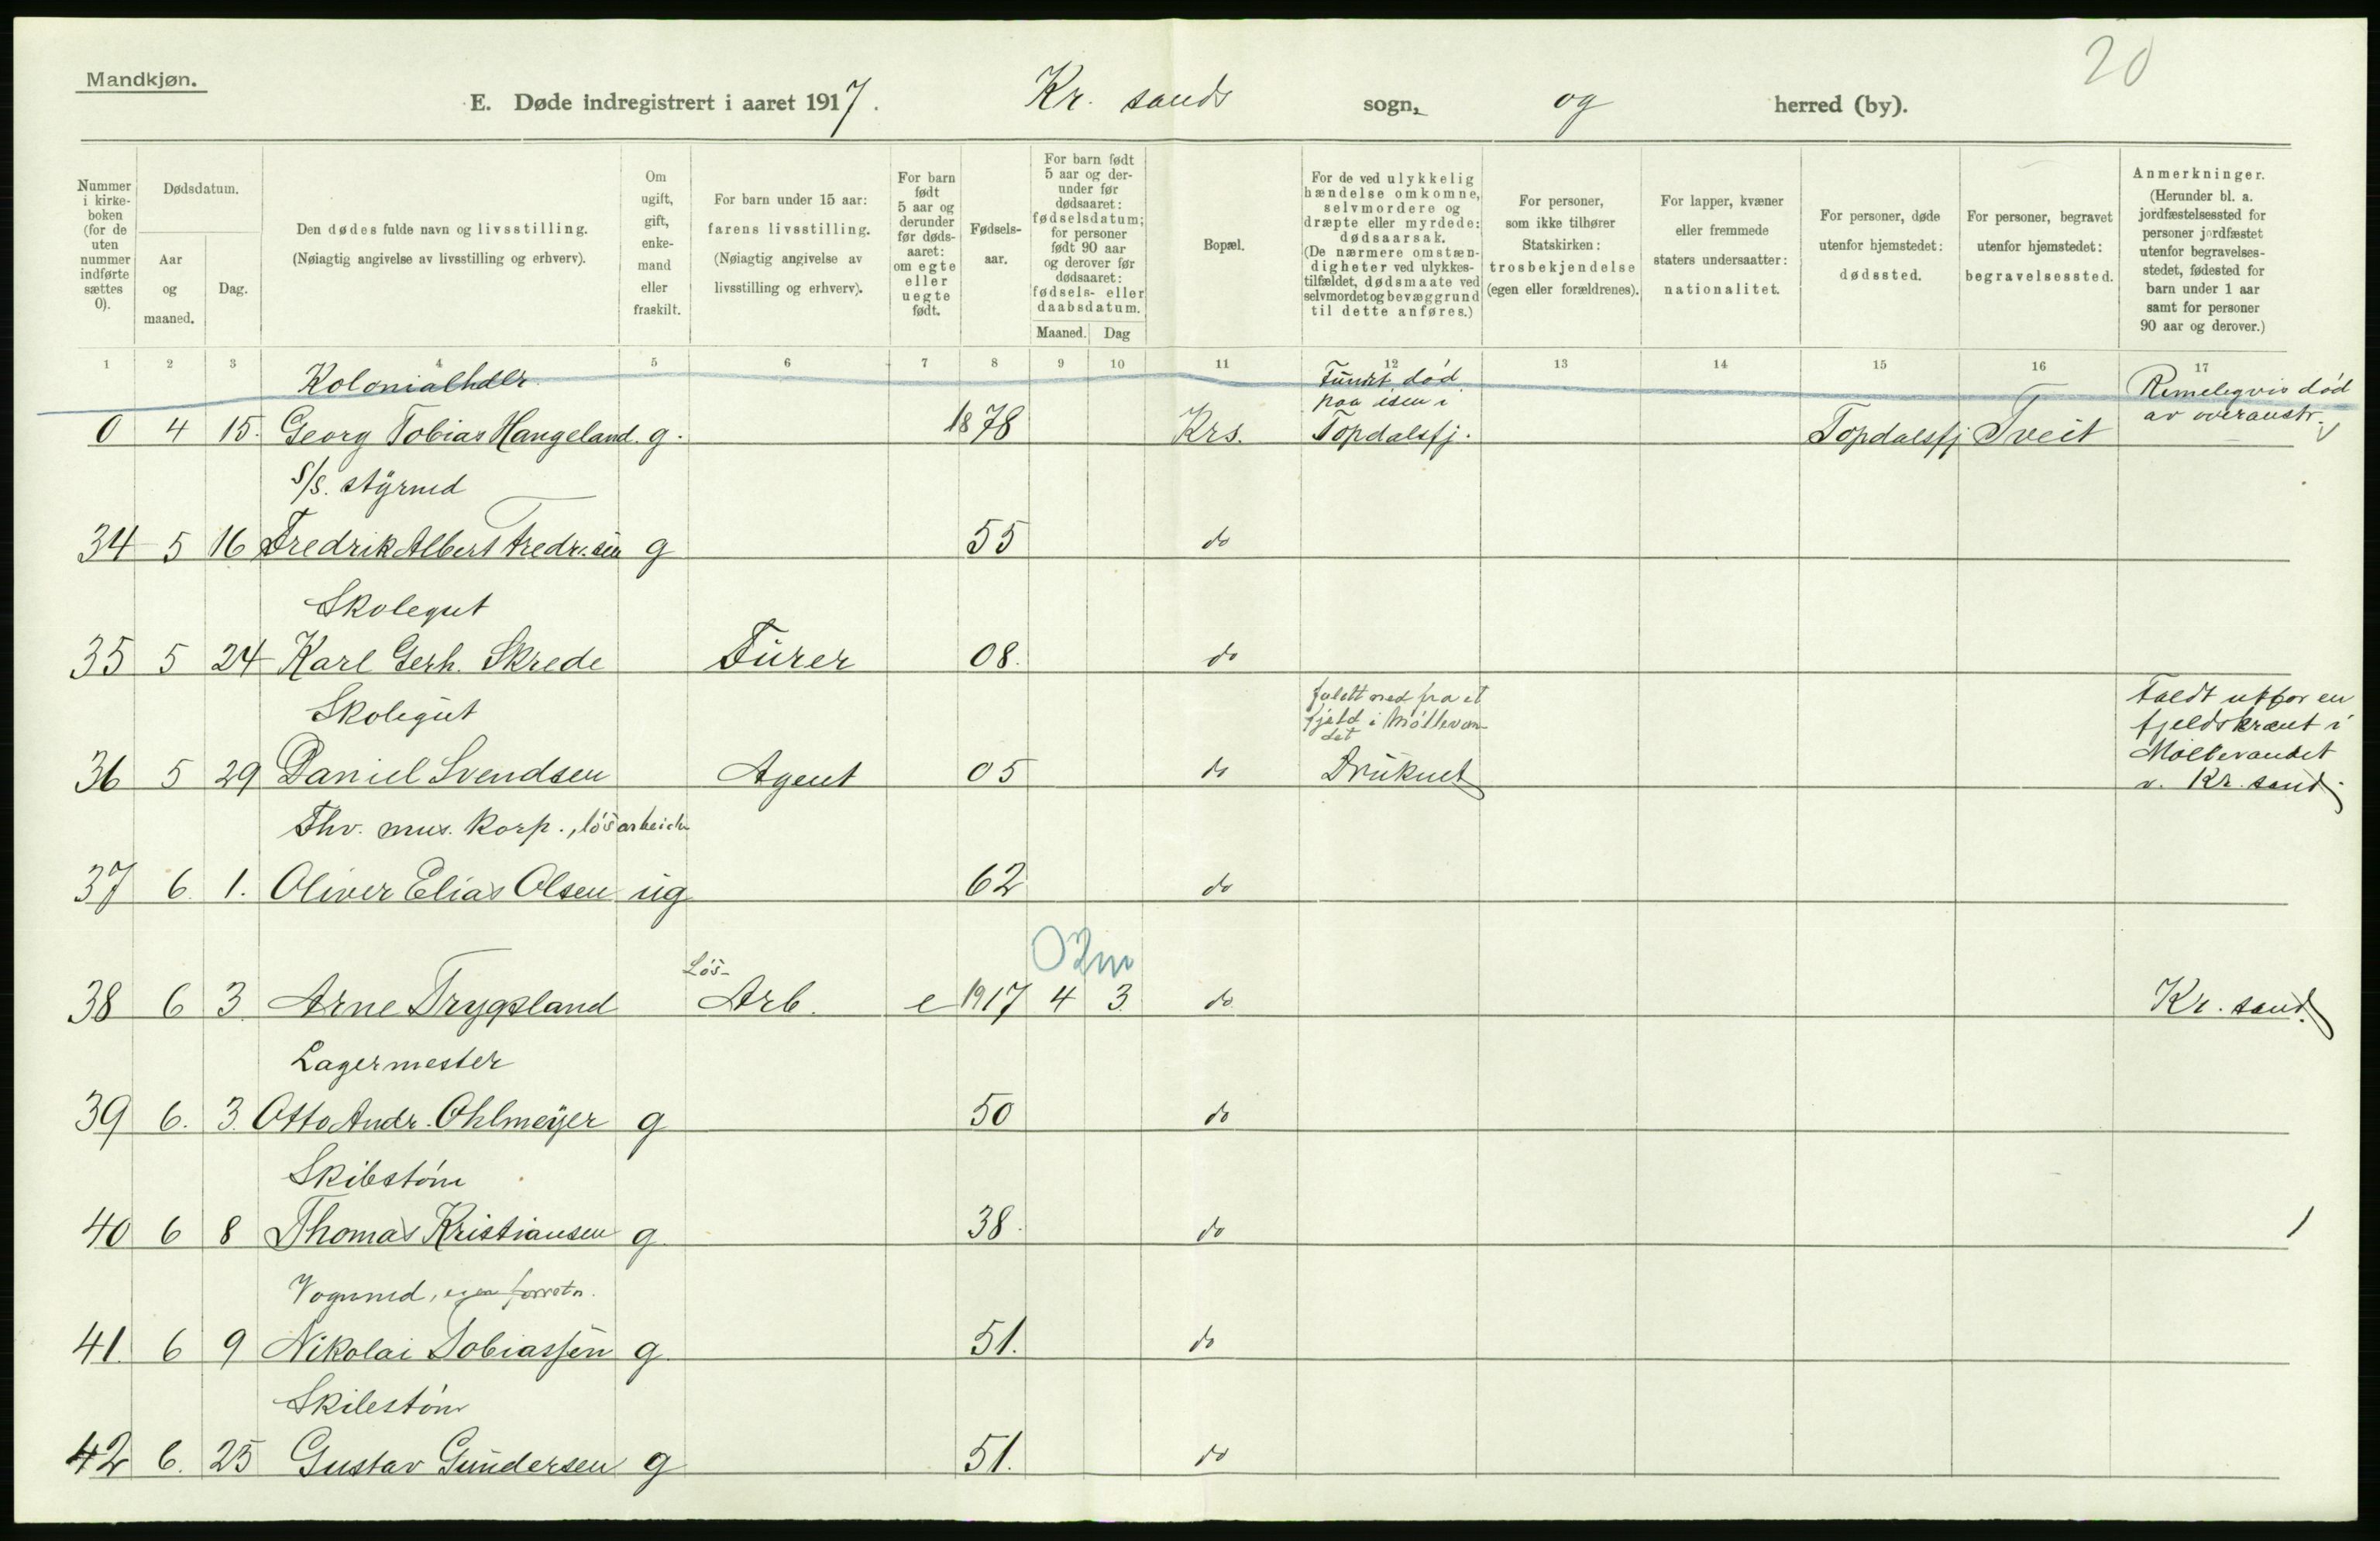 20
Mandkjøn.
E. Døde indregistrert i aaret 1917. Kr. sands sogn, og herred (by).
Nummer i kirke-boken (for de uten nummer indførte sættes 0).
Dødsdatum.
Aar og maaned.
Dag.
Den dødes fulde navn og livsstilling.
(Nøiagtig angivelse av livsstilling og erhverv).
Om ugift, gift, enke-mand eller fraskilt.
For barn under 15 aar: farens livsstilling.
(Nøiagtig angivelse av livsstilling og erhverv).
For barn født 5 aar og derunder før døds-aaret: om egte eller uegte født.
Fødsels-aar.
For barn født 5 aar og der-under før dødsaaret: fødselsdatum; for personer født 90 aar og derover før dødsaaret: fødsels- eller daabsdatum.
Maaned. Dag
Bopæl.
For de ved ulykkelig hændelse omkomne, selvmordere og dræpte eller myrdede: dødsaarsak.
(De nærmere omstæn-digheter ved ulykkes-tilfældet, dødsmaate ved selvmordet og bevæggrund til dette anføres.)
For personer, som ikke tilhører Statskirken: trosbekjendelse (egen eller forældrenes).
For lapper, kvæner eller fremmede staters undersaatter: nationalitet.
For personer, døde utenfor hjemstedet: dødssted.
For personer, begravet utenfor hjemstedet: begravelsessted.
Anmerkninger.
(Herunder bl. a. jordfæstelsessted for personer jordfæstet utenfor begravelses-stedet, fødested for barn under 1 aar samt for personer 90 aar og derover.)
1 2 3 4 5 6 7 8 9 10 11 12 13 14 15 16 17
Kolonialhdlr. Fundet død Rimeligvis død
paa isen i av overanstr.
0 4 15. Georg Tobias Hangeland. g. 1878 Krs. Topdalsfj. Topdalsfj Tveit
S/S. styrmd
34 5 16 Fredrik Albert Fredr.sen g 55 do
Skolegut
35 5 24 Karl Gerh. Skrede Fürer 08. do
Skolegut faldt ned fra et Faldt utfor en
fjeld i Møllevan- fjeldskrænt i
det Møllevandet
36 5 29 Daniel Svendsen Agent 05 do Druknet v. Kr. sand.
Fhv. mus. korp., løsarbeider
37 6. 1. Oliver Elias Olsen ug 62 do
0 2 m
Løs-
38 6 3. Arne Trygsland Arb. e 1917 4 3. do Kr. sand.
Lagermester
39 6. 3. Otto Andr. Ohlmeyer g 50 do
Skibstøm
40 6 8 Thomas Kristiansen g. 38. do 1
Vognmd, egen forretn.
41. 6 9 Nikolai Tobiassen g. 51. do
Skibstøm
42 6. 25 Gustav Gundersen g 51. do